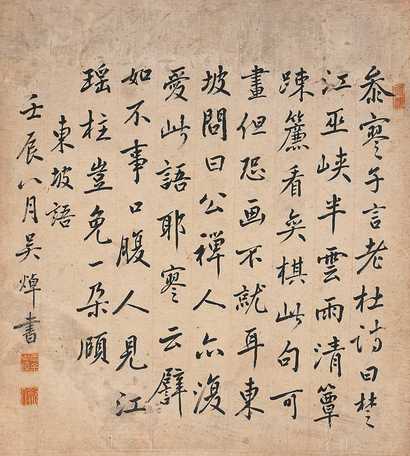 叅寥子言老杜诗曰楚
江巫峡半雲雨清簟
踈簾看奕棋此句可
畫但恐画不就耳東
坡問曰公禪人亦復
愛此語耶寥云譬
如不事口腹人見江
瑶柱豈免一朶頥
東坡語
壬辰八月吴焯書